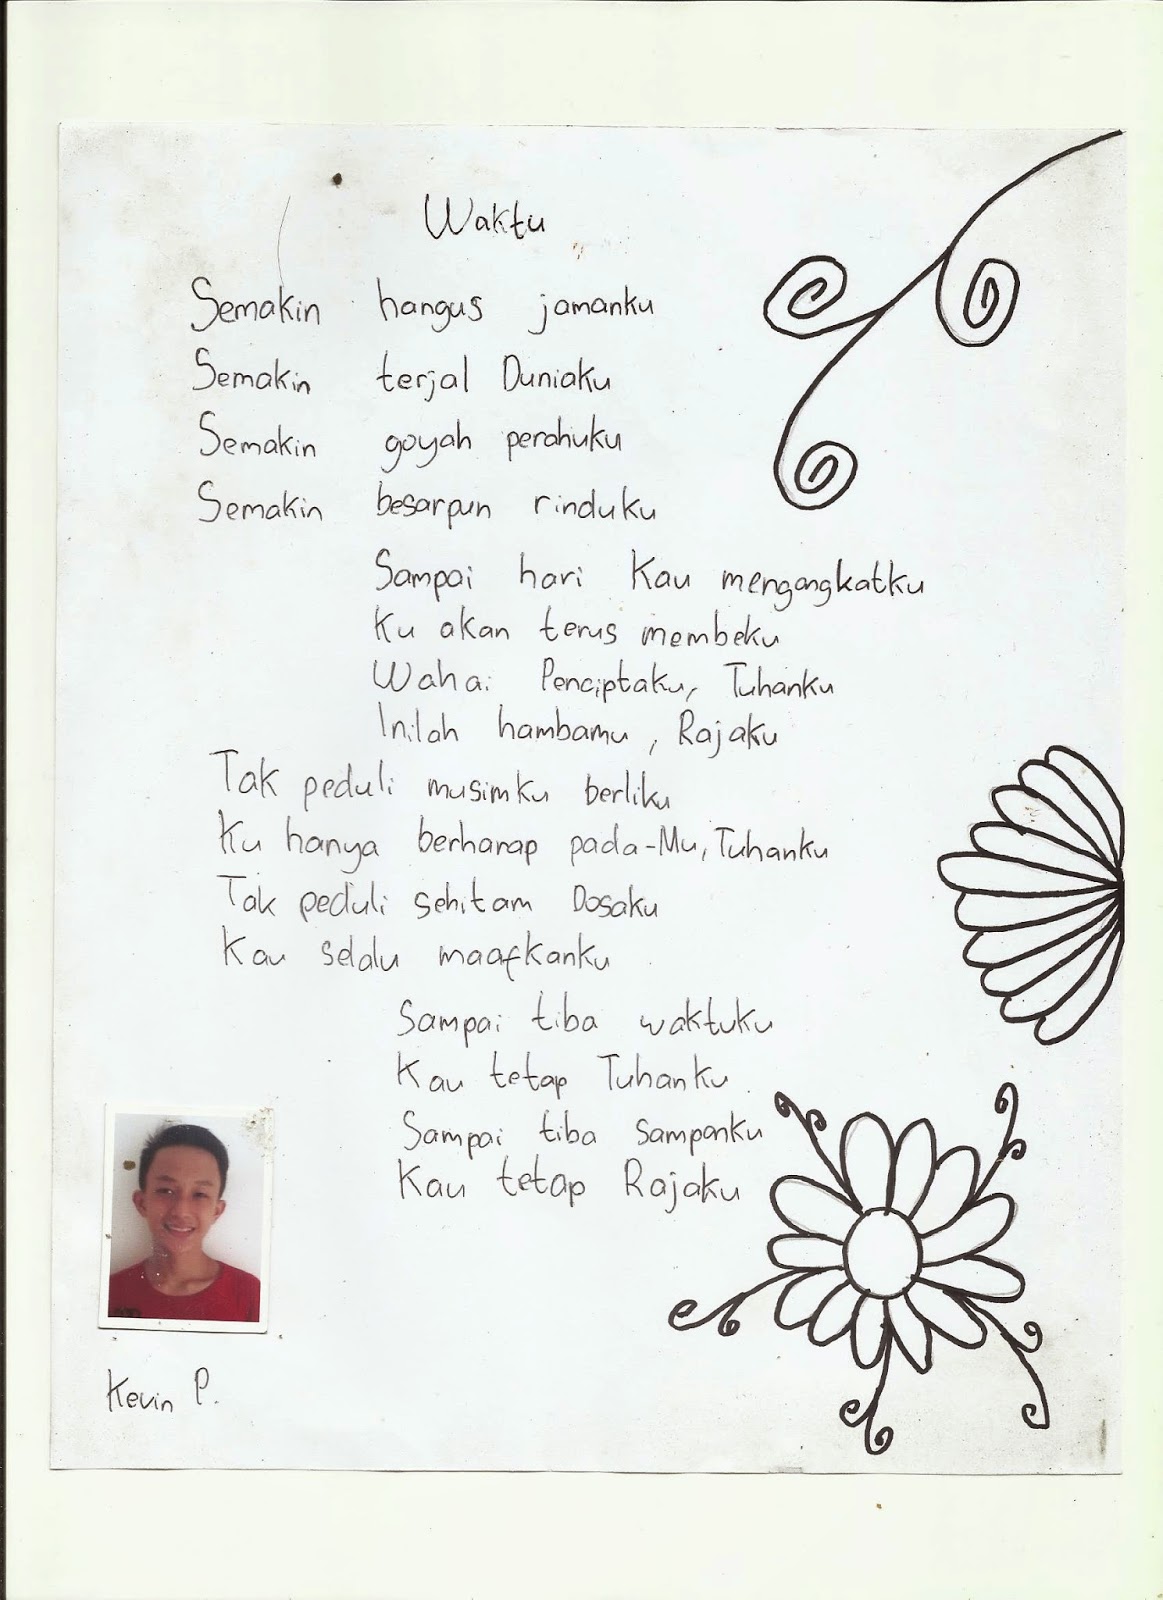 Waktu
Semakin hangus jamanku
Semakin terjal Duniaku
Semakin goyah perahuku
Semakin besarpun rinduku
Sampai hari Kau mengangkatku
Ku akan terus membeku
Wahai Penciptaku, Tuhanku
Inilah hambamu, Rajaku
Tak peduli musimku berliku
Ku hanya berharap pada-Mu, Tuhanku
Tak peduli sehitam Dosaku
Kau selalu maafkanku
Sampai tiba waktuku
Kau tetap Tuhanku
Sampai tiba sampanku
Kau tetap Rajaku
Kevin P.